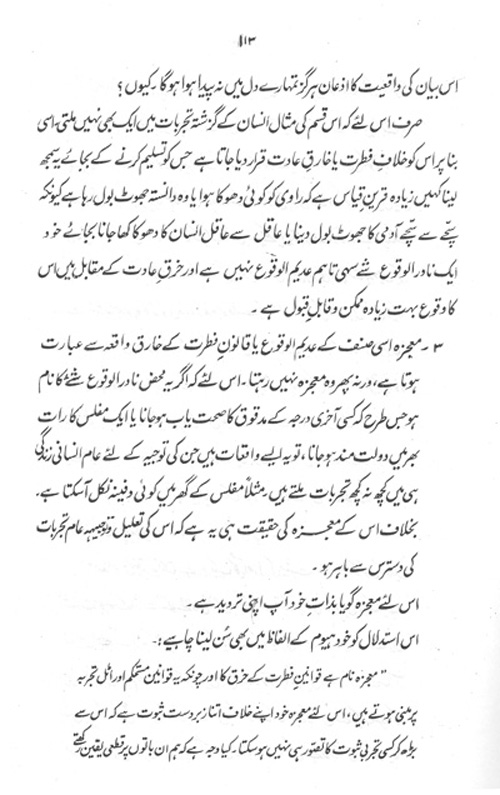 ۱۱۳
اس بیان کی واقعیت کا اذعان ہرگز تمہارے دل میں نہ پیدا ہوا ہوگا۔ کیوں؟
صرف اس لئے کہ اس قسم کی مثال انسان کے گزشتہ تجربات میں ایک بھی نہیں ملتی۔ اسی
بنا پر اس کو خلاف فطرت یا خارقِ عادت قرار دیا جاتا ہے جس کو تسلیم کرنے کے بجائے یہ سمجھ
لینا کہیں زیادہ قرینِ قیاس ہے کہ راوی کو کوئی دھوکا ہوا یا وہ دانستہ جھوٹ بول رہا ہے کیونکہ
سچے سے سچے آدمی کا جھوٹ بول دینا یا عاقل سے عاقل انسان کا دھوکا کھا جانا بجائے خود
ایک نادر الوقوع شے سہی تاہم عدیم الوقوع نہیں ہے اور خرقِ عادت کے مقابل میں اس
کا وقوع بہت زیادہ ممکن و قابلِ قبول ہے۔
۳ ۔ معجزہ اسی صنف کے عدیم الوقوع یا قانونِ فطرت کے خارق واقعہ سے عبارت
ہوتا ہے، ورنہ پھر وہ معجزہ نہیں رہتا۔ اس لئے کہ اگر یہ محض نادر الوقوع شئے کا نام
ہو جس طرح کہ کسی آخری درجہ کے مدقوق کا صحت یاب ہو جانا یا ایک مفلس کا رات
بھر میں دولت مند ہو جانا، تو یہ ایسے واقعات ہیں جن کی توجیہ کے لئے عام انسانی زندگی
ہی میں کچھ نہ کچھ تجربات ملتے ہیں۔ مثلاً مفلس کے گھر میں کوئی دفینہ نکل آسکتا ہے۔
بخلاف اس کے معجزہ کی حقیقت ہی یہ ہے کہ اس کی تعلیل و توجیہہ عام تجربات
کی دسترس سے باہر ہو۔
اس لئے معجزہ گویا بذاتِ خود آپ اپنی تردید ہے۔
اس استدلال کو خود ہیوم کے الفاظ میں بھی سن لینا چاہیے:۔
"معجزہ نام ہے قوانینِ فطرت کے خرق کا اور چونکہ یہ قوانین مستحکم اور اٹل تجربہ
پر مبنی ہوتے ہیں، اس لئے معجزہ خود اپنے خلاف اتنا زبردست ثبوت ہے کہ اس سے
بڑھ کر کسی تجربی ثبوت کا تصور ہی نہیں ہو سکتا۔ کیا وجہ ہے کہ ہم ان باتوں پر قطعی یقین رکھتے